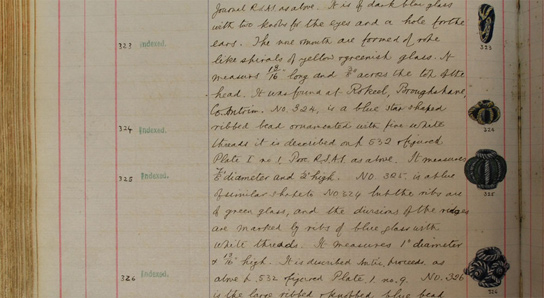 Journal R.S.A.I. as above. It is of dark blue glass
with two knobs for the eyes and a hole for the
ears. The nose mouth are formed of rope
323 Indexed. like spirals of yellow & greenish glass. It
measures 13/16" long and across the top of the
head. It was found at Rokeel, Broughshane,
Co. Antrim. No. 324, is a blue star shaped
324 Indexed. ribbed bead ornamented with fine white
threads it is described on p. 532 & figured
Plate I no 1 Proc R.S.A.I. as above. It measures
diameter and high. No. 325 is a blue
325 Indexed. of similar shape to No 324 but the ribs are
of green glass, and the divisions of the ridges
are marked by ribs of blue glass with
white threads. It measures 1" diameter
& high. It is described in the proceeds. as
326 Indexed. above p. 532 & figured Plate, 1. no. 9. No. 326
is the large ribbed & knobbed, blue bead
323
324
325
326